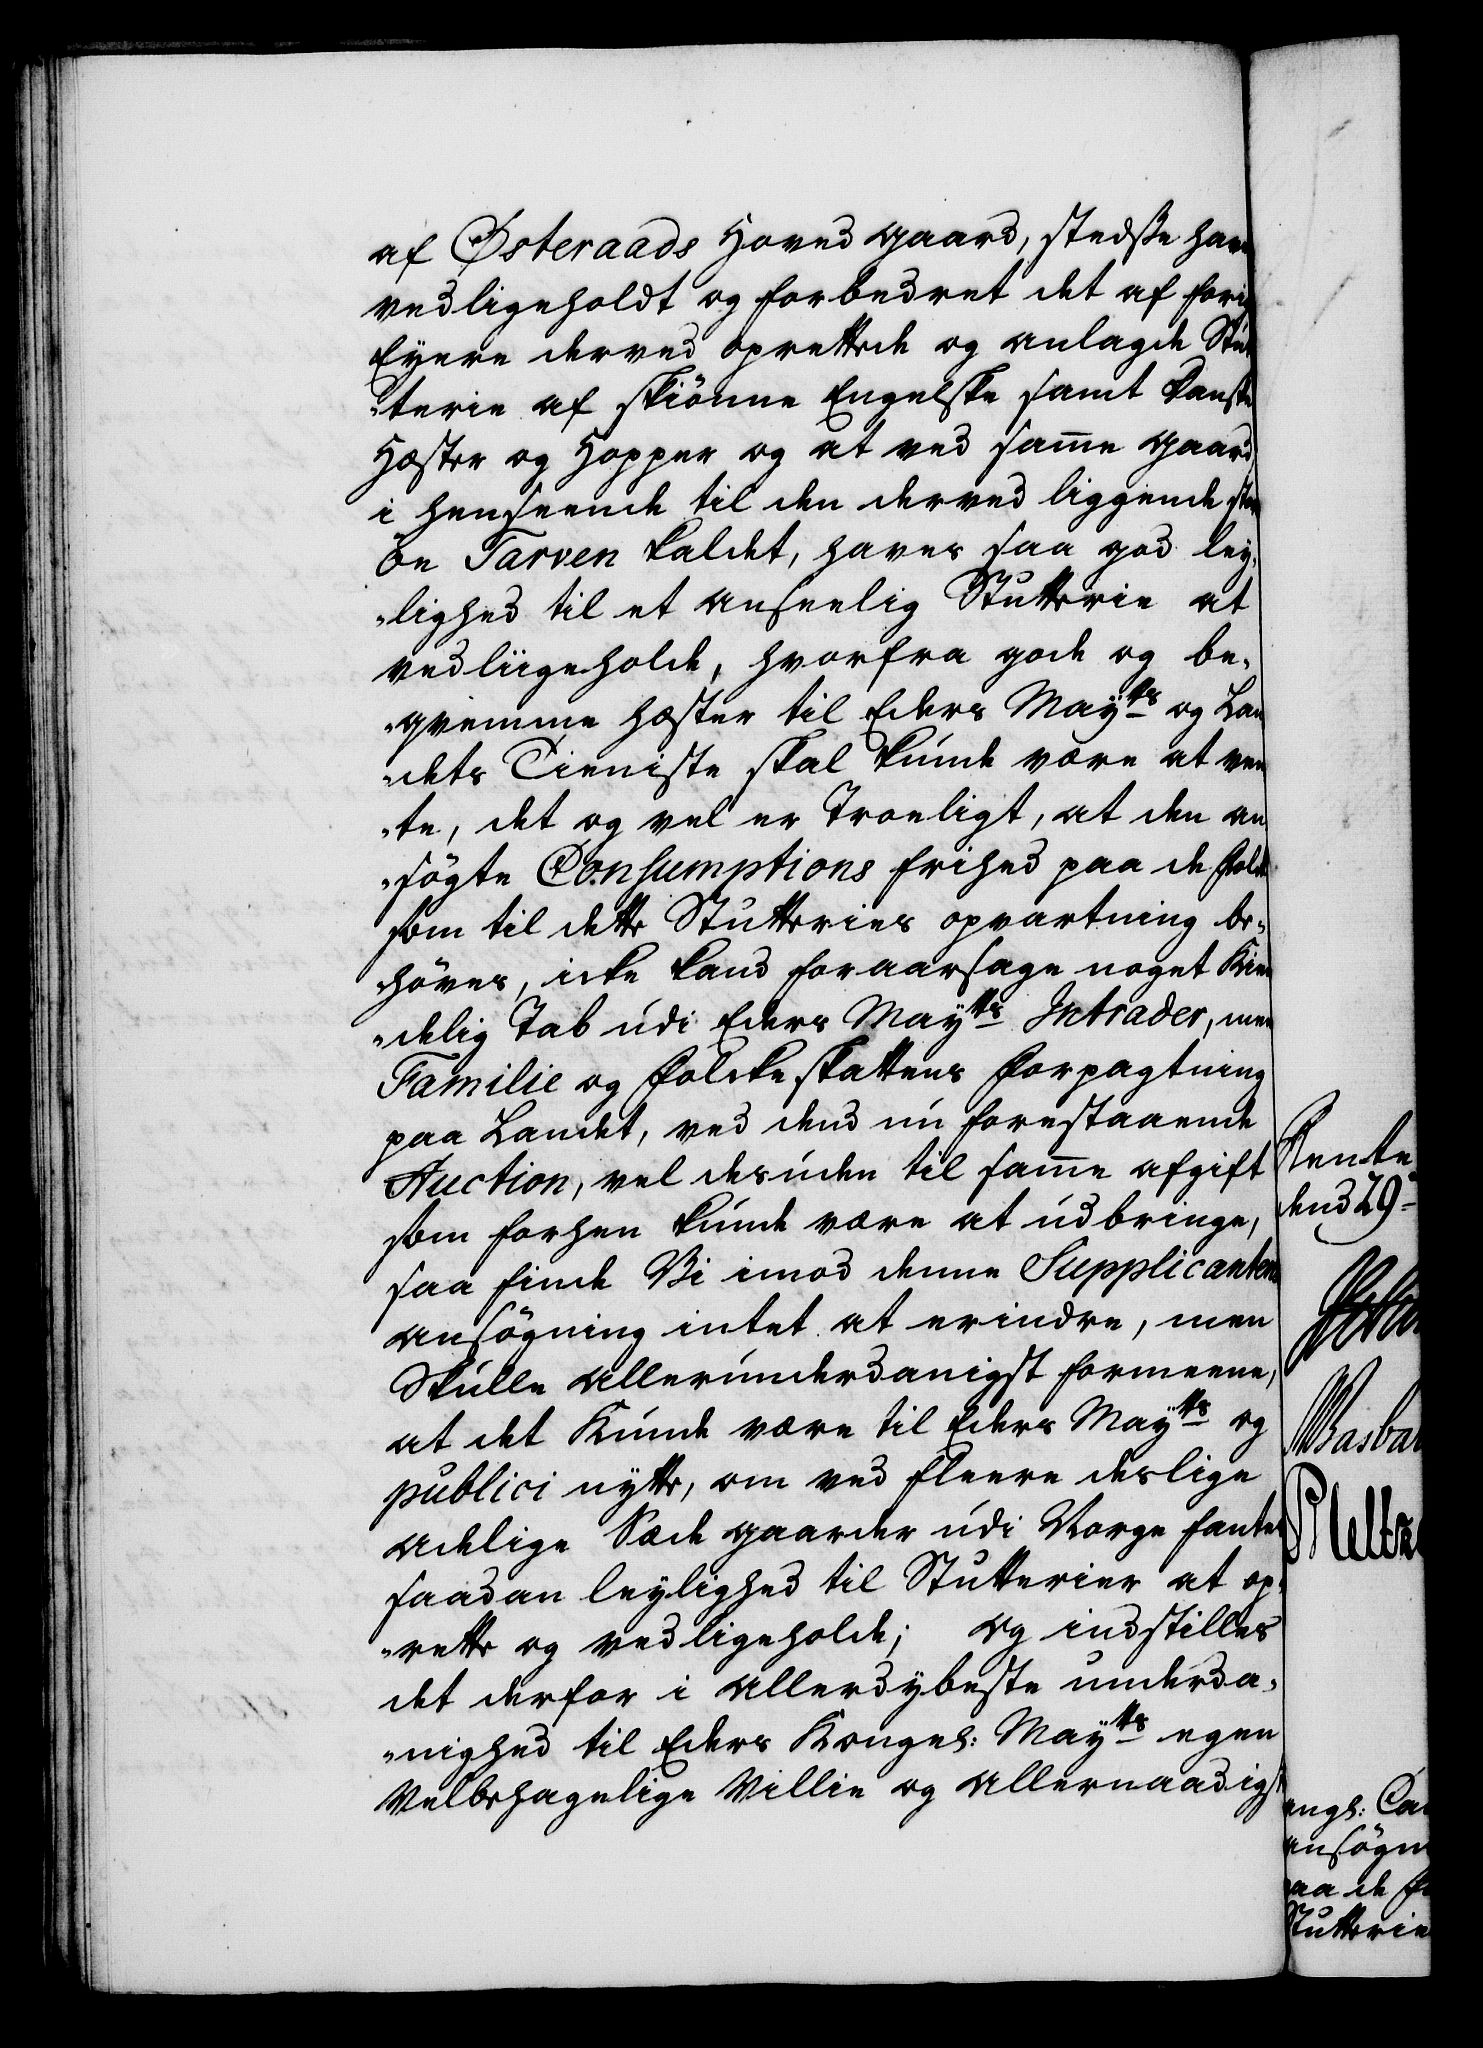 af Østeraads Hoved gaard, stedsse have
vedligeholdt og forbedret det af forig
Eyere derved oprettede og anlagde Stut
"terie af skiönne Engelske samt Danske
Hæster og Hopper og at ved samme gaard
i henseende til den derved liggende
Øe Tarven kaldet, haves saa god ley,
"lighed til et anseelig Stutterie at
vedliigeholde, hvorfra gode og be,
"qvemme hæster til Eders Mayts og Lan
"dets Tieniste skal kunde være at ven
"te, det og vel er Troeligt, at den an
"søgte Consumptions frihed paa de folk
som til dette Stutteries opvartning be,
"höves, icke kand foraarsage noget Kien
"delig Tab udi Eders Mayts Intrader, men
Familie og Folcke skattens Forpagtning
paa Landet, ved dend nu forestaaende
Auction, vel desuden til samme afgift
som forhen kunde være at udbringe,
saa finde Vi imod denne Supplicantens
ansögning intet at erindre, men
Skulle allerunderdanigst formeene,
at det Kunde være til Eders Mayts og
publici nytte, om ved fleere deslige
adelige Sæde gaarder udi Norge fantes
saadan leylighed til Stutterier at op,
"rette og vedligeholde; og indstilles
det derfor i allerdybeste underda,
"nighed til Eders Kongel: Mayts egen
Velbehagelige Villie og allernaadigst
Rente
dend 29
ansøgn
aa de
Stutterie